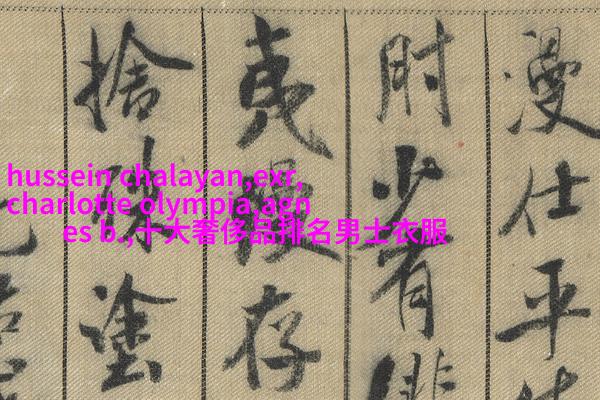 hussein chalayan,exr,
charlotte olympia,agn
es b.,十大奢侈品排名男士衣服
漫仕平
肘少有
夷漫存
捨殊塗